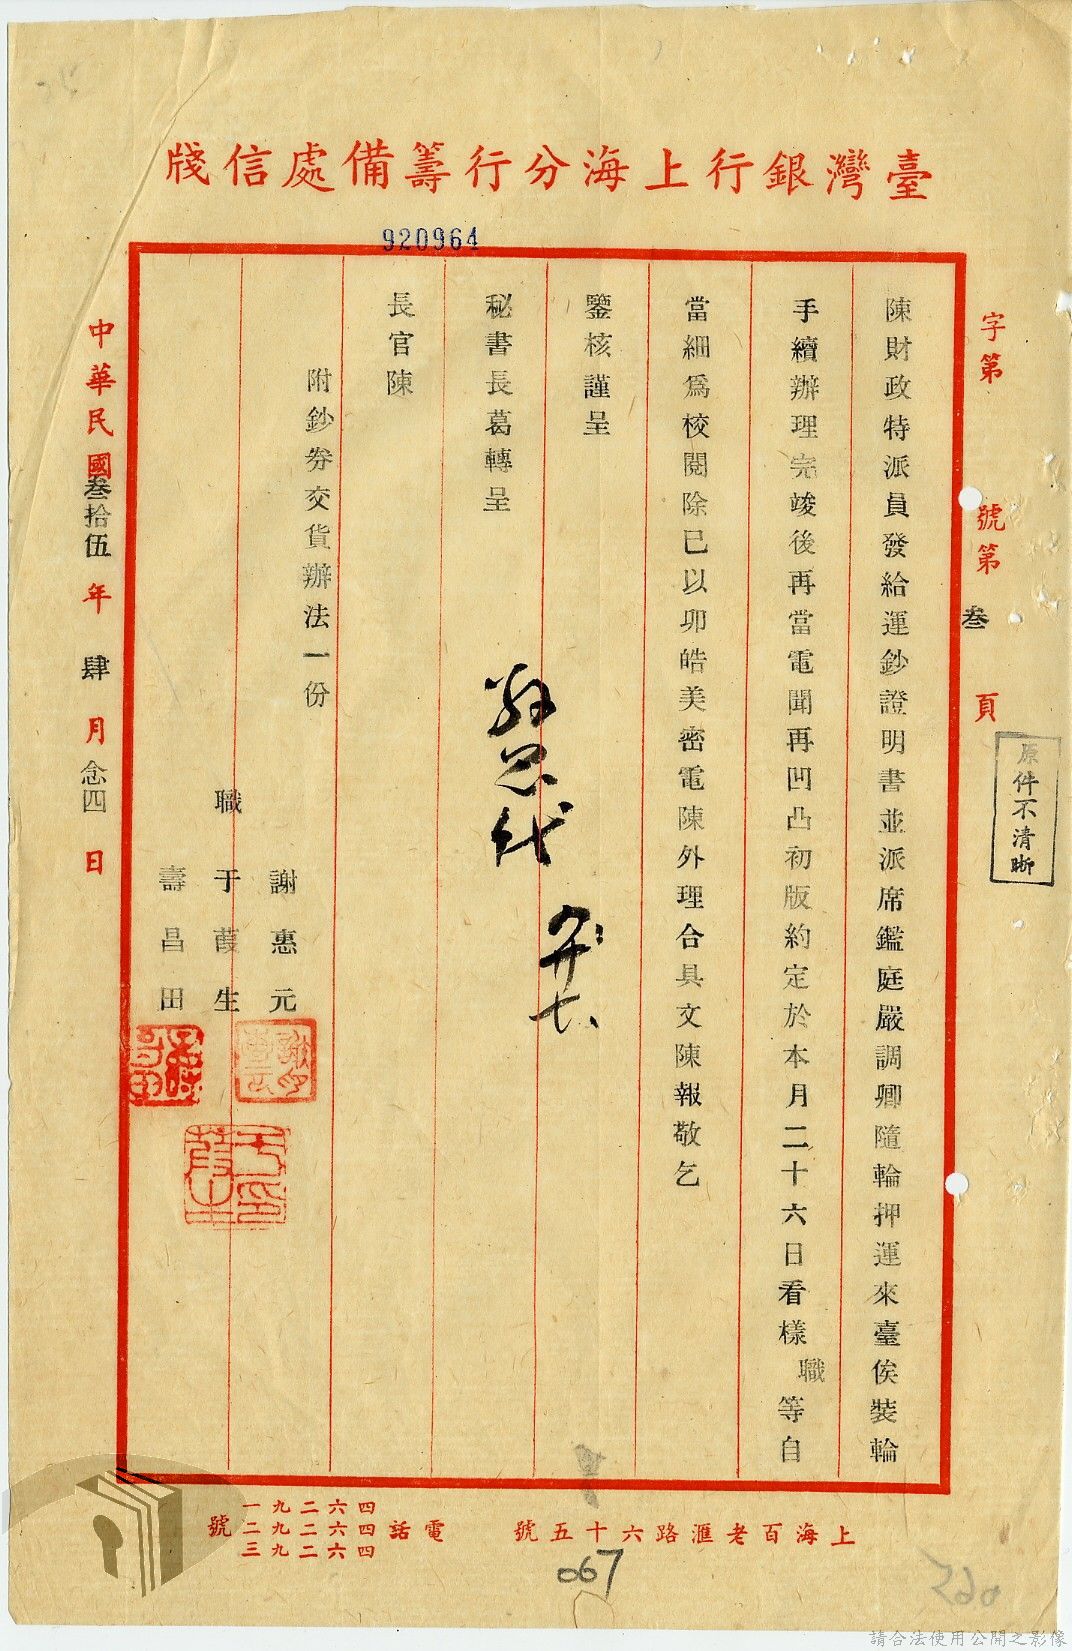 臺灣銀行上海分行籌備處信牋
920964
字第　號第叁頁
原件不清晰
陳財政特派員發給運鈔證明書並派席鑑庭嚴調卿隨輪押運來臺俟裝輪
手續辦理完竣後再當電聞再凹凸初版約定於本月二十六日看樣職等自
當細為校閱除已以卯皓美密電陳外理合具文陳報敬乞
鑒核謹呈
秘書長葛轉呈
長官陳
附鈔券交貨辦法一份
謝惠元
職于葭生
壽昌田
中華民國叁拾伍年肆月念四日
上海百老滙路六十五號
電話
四六二九一
四六二九二
四六二九三
號
067
請合法使用公開之影像